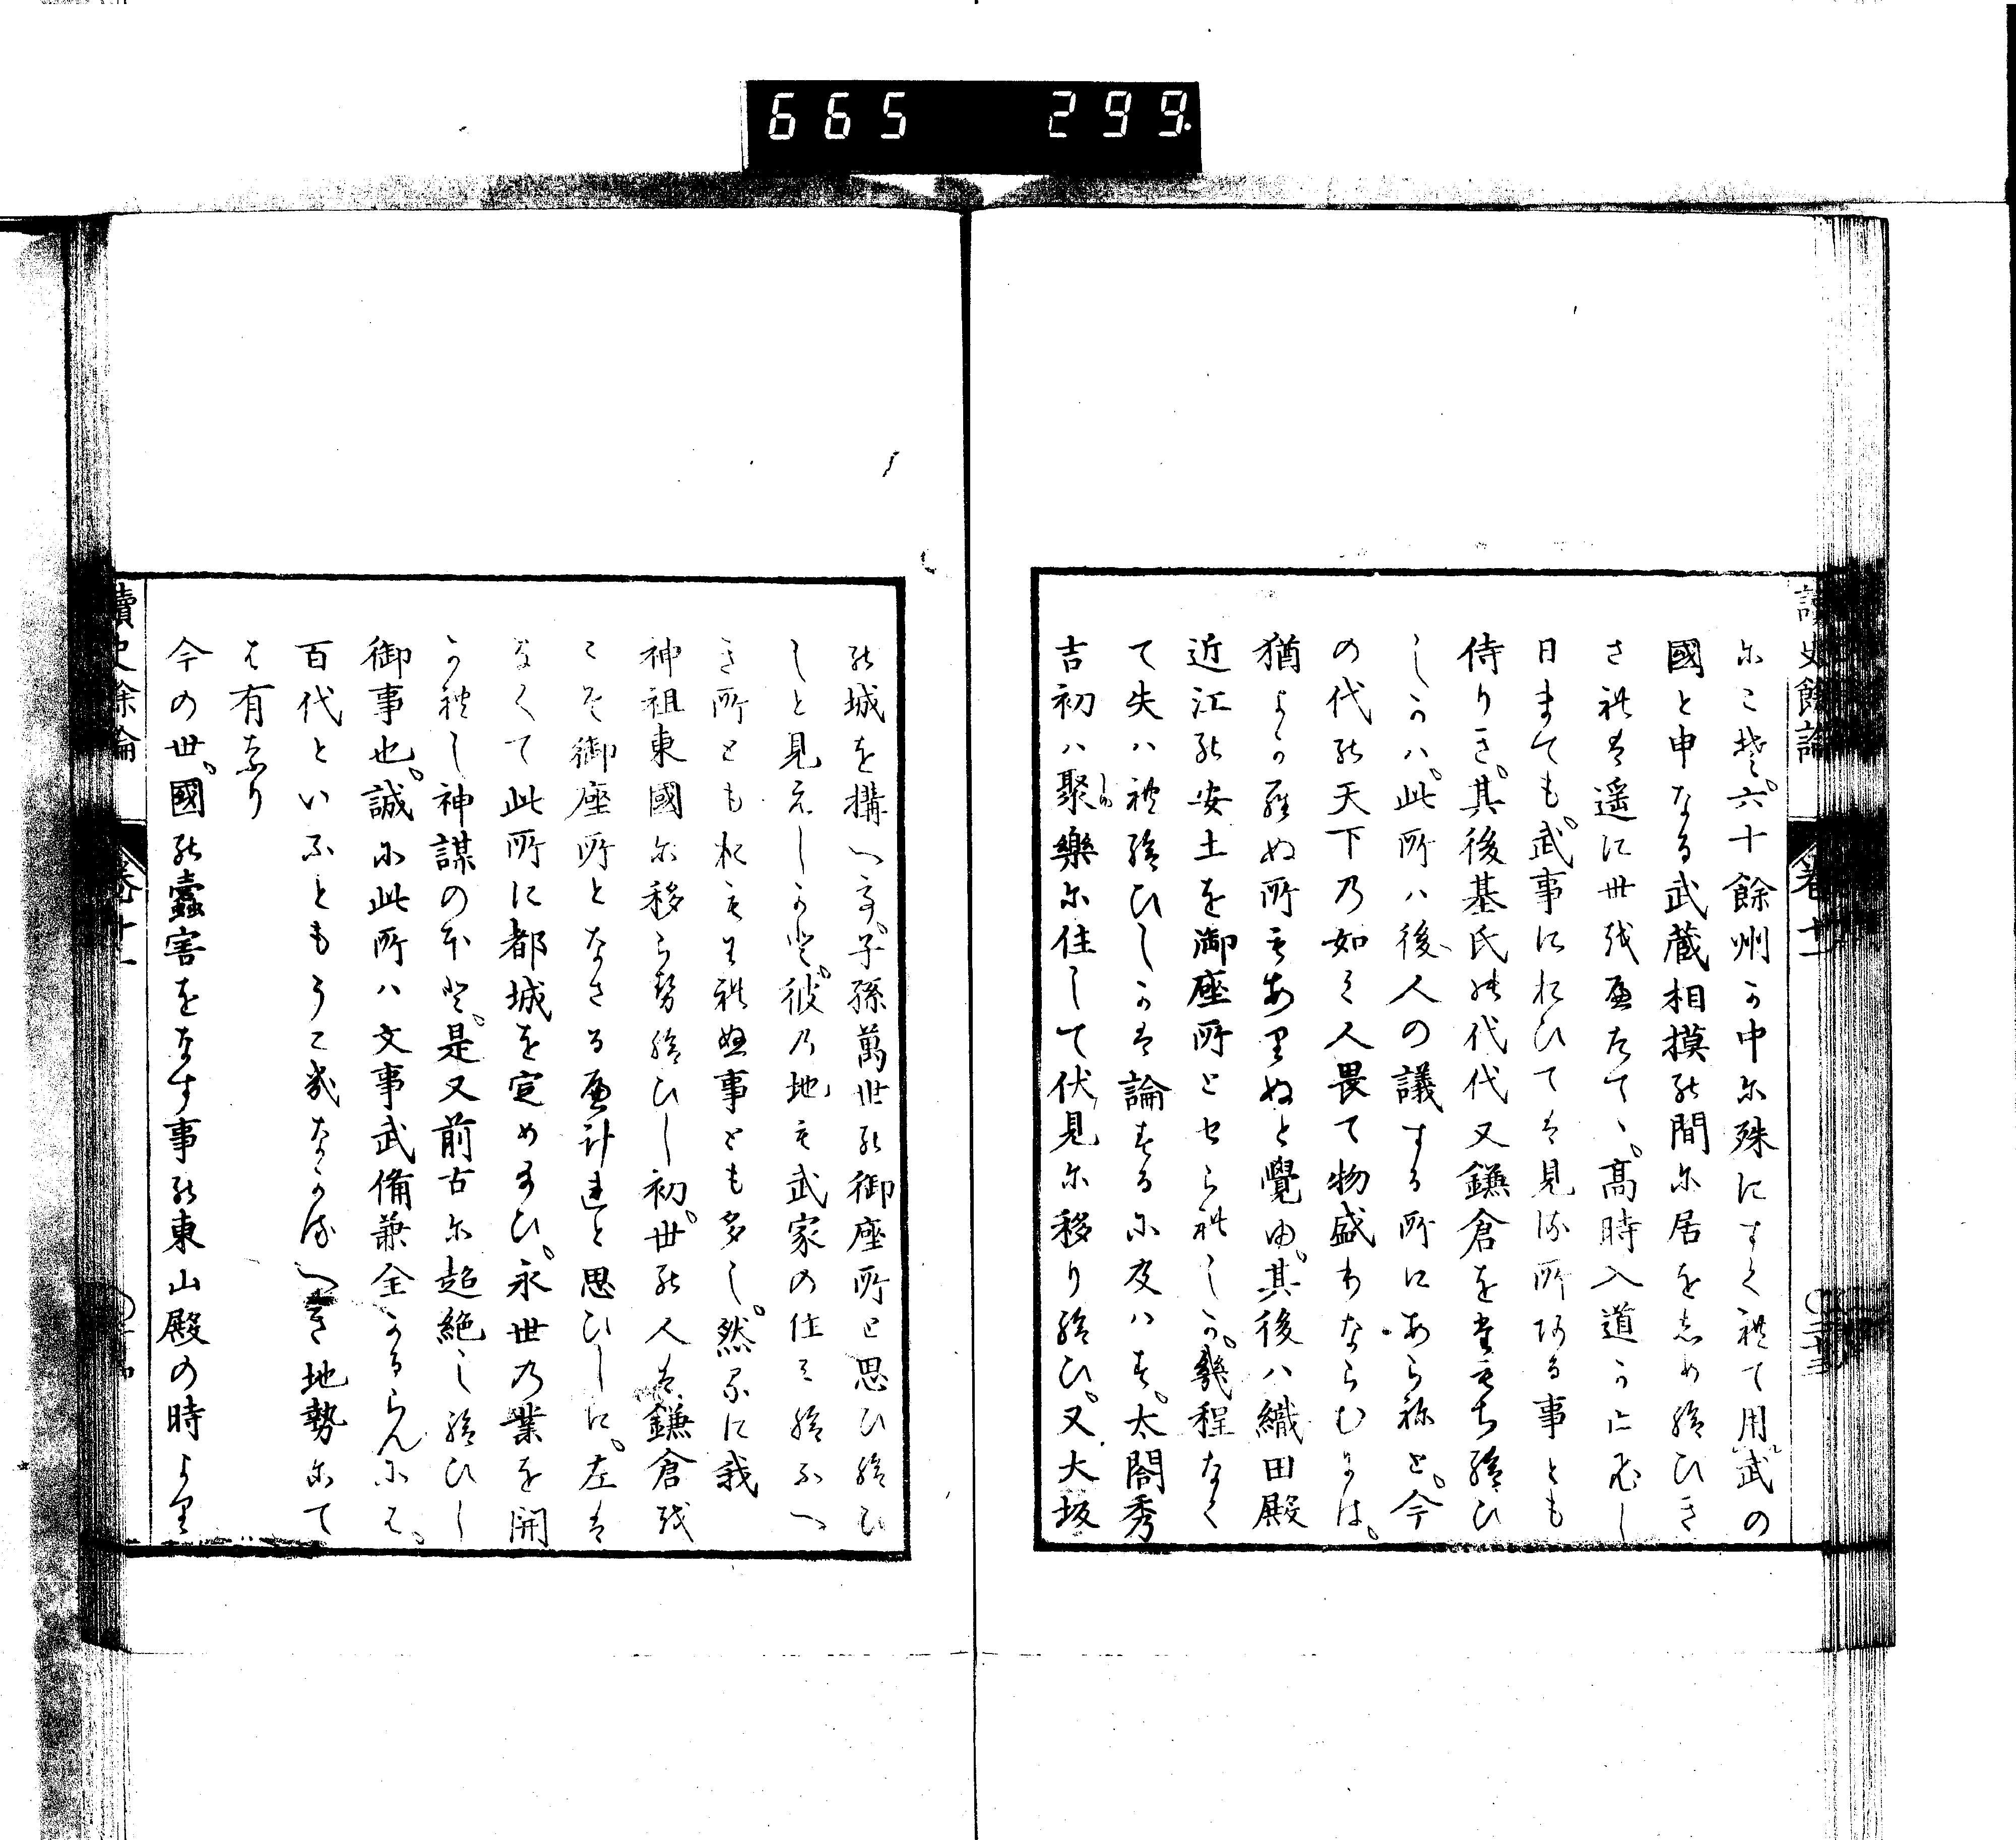 665 299
讀史餘論 卷十一
にこそ。六十餘州か中に殊にすくれて用武の
國と申なる武蔵相摸の間に居をしめ給ひき
されは遥に世をへたてゝ。高時入道かほろひし
日まても。武事におひては見る所ある事とも
侍りき。其後基氏の代代又鎌倉をたもち給ひ
しかハ。此所ハ後人の議する所にあらねと。今
の代の天下の如く人畏て物盛りならむには。
猶よからぬ所もありぬと覺ゆ。其後ハ織田殿
近江の安土を御座所とせられしか。幾程なく
て失ハれ給ひしかは論するに及ハす。太閤秀
吉初ハ聚樂に住して伏見に移り給ひ。又大坂
の城を搆へて。子孫萬世の御座所と思ひ給ひ
しと見えしかと。彼の地も武家の住み給ふへ
き所ともおもはれぬ事とも多し。然るに我
神祖東國に移らせ給ひし初。世の人は鎌倉を
こそ御座所となさるへけれと思ひしに。左は
なくて此所に都城を定め給ひ。永世の業を開
かれし神謀のほと。是又前古に超絶し給ひし
御事也。誠に此所ハ文事武備兼全かるらんには。
百代といふともうこきなかるへき地勢にて
は有なり
今の世。國の蠹害をなす事の東山殿の時より
讀史餘論 卷十一